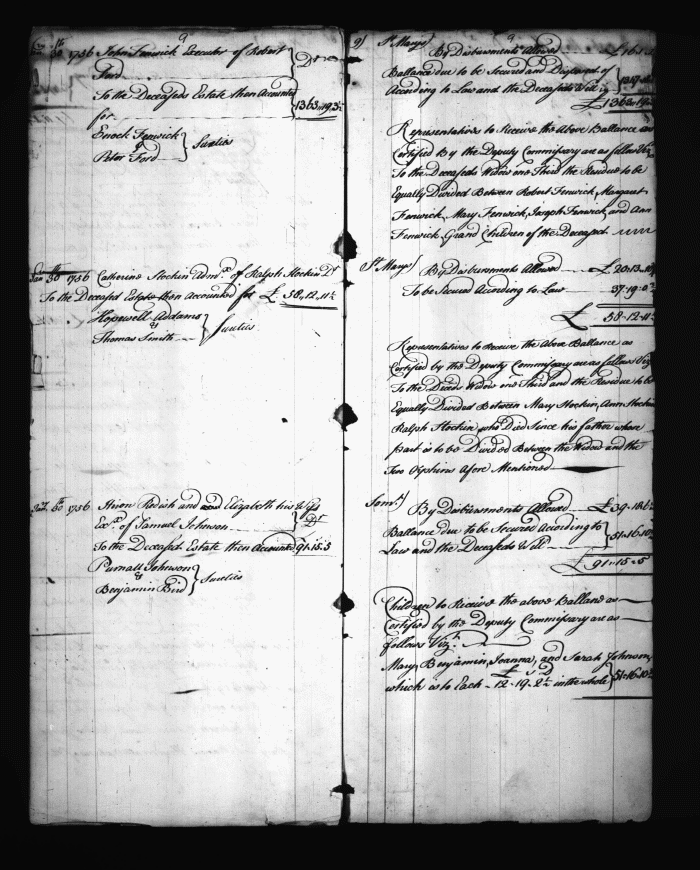 9
30 1756 John Fenwick Executor of Robert
Ford
Dr
To the Deceaseds Estate then Accounted
for
1363..19..5
Enoch Fenwick
&
Peter Ford
Sureties
30 1756 Catherine Hoskin Admx. of Ralph Hoskin Dr
To the Deceasd Estate then Accounted for £ 58..12..11½
Hopewell Addams
&
Thomas Smith
Sureties
1756 and Elizabeth his Wife
Exs. of Samuel Johnson
Dr
To the Deceasd. Estate then Accounted 91..15..5
Purnall Johnson
&
Benjamin Bird
Sureties
9) St. Marys 9
By Disbursments Allowed
Ballance due to be Secured and Disposed of
According to Law and the Deceaseds Will
£1363..19
Representatives to Receive the Above Ballance as
Certified By the Deputy Commissary are as follows Viz
To the Deceaseds Widow one Third the Residue to be
Equally Divided Between Robert Fenwick, Margaret
Fenwick, Mary Fenwick, Joseph Fenwick, and Ann
Fenwick, Grand Children of the Deceasd
St. Marys) By Disbursments Allowed £ 20..13
To be Secured According to Law 37..19..0
£ 58-12-11½
Representatives to Receive the Above Ballance as
Certified by the Deputy Commissary are as follows Viz
To the Deceds Widow one Third and the Residue to be
Equally Divided Between Mary Hoskin, Ann Hoskin
Ralph Hoskin who Died Since his father whose
part is to be Divided Between the Widow and the
Two Orphins afore Mentioned
Somt.) By Disbursments Allowed £39-18-6½
Ballance due to be Secured According to
Law and the Deceaseds Will
51-16-10½
£ 91-15-5
Children to Receive the above Ballance as
Certified by the Deputy Commissary are as
follows Vizt.
Mary, Benjamin, Joanna, and Sarah Johnson,
which is to Each £12-19-2½ in the whole
51-16-10½